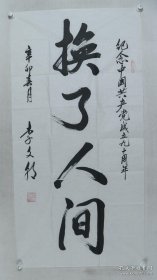 纪念中国共产党成立九十周年
换了人间
辛卯春月
李文